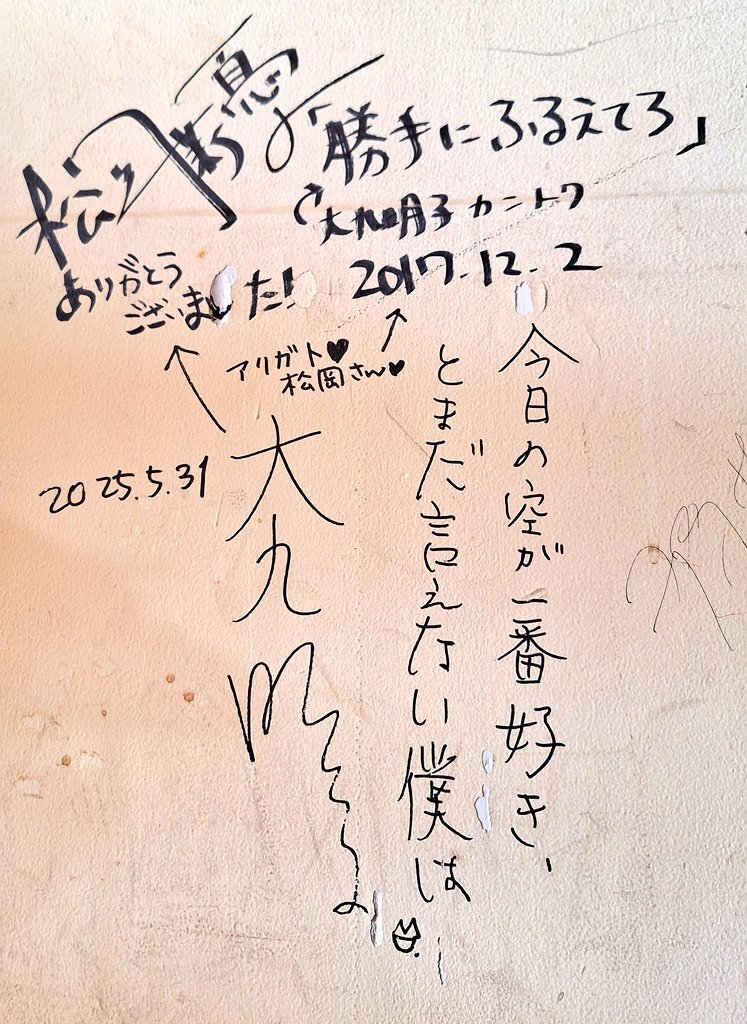 「勝手にふるえてろ」
大九明子カントク
2017.12.2
ありがとう
ございました!
アリガト♥
松岡さん♥
今日の空が一番好き、
とまだ言えない僕は
大九明子
2025.5.31